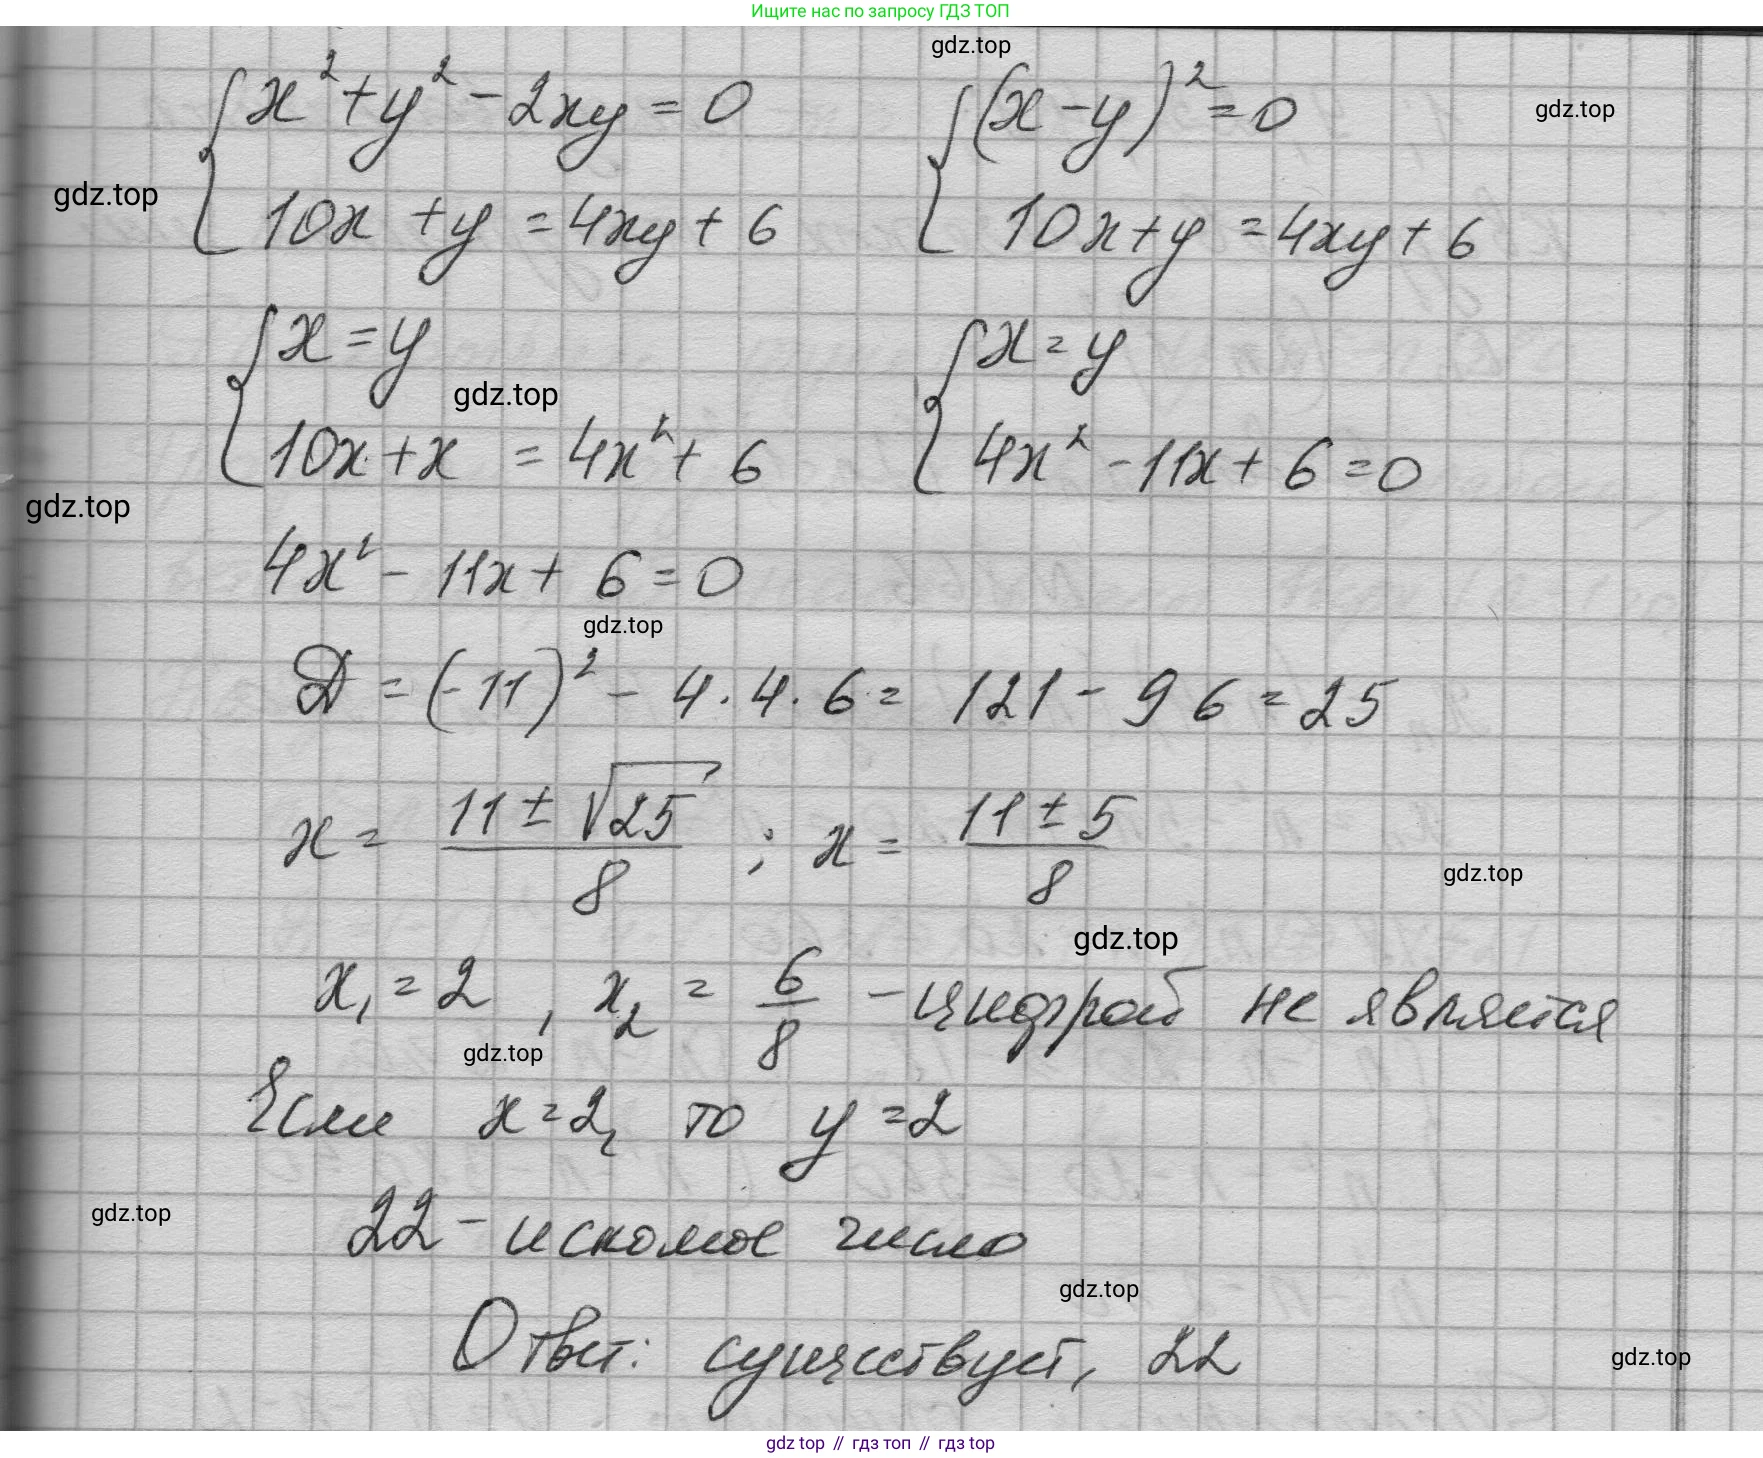 Ищите нас по запросу ГДЗ ТОП
gdz.top
x² + y² - 2xy = 0 (x - y)² = 0
gdz.top
gdz.top
10x + y = 4xy + 6 10x + y = 4xy + 6
x = y x = y
gdz.top
10x + x = 4x² + 6 4x² - 11x + 6 = 0
gdz.top
4x² - 11x + 6 = 0
gdz.top
Д = (-11)² - 4 · 4 · 6 = 121 - 96 = 25
x = (11 ± √25)/8 ; x = (11 ± 5)/8
gdz.top
gdz.top
x₁ = 2 , x₂ = 6/8 - цифрой не является
gdz.top
Если x = 2, то y = 2
gdz.top
22 - искомое число
gdz.top
Ответ: существует, 22
gdz.top
gdz top // гдз топ // gdz.top